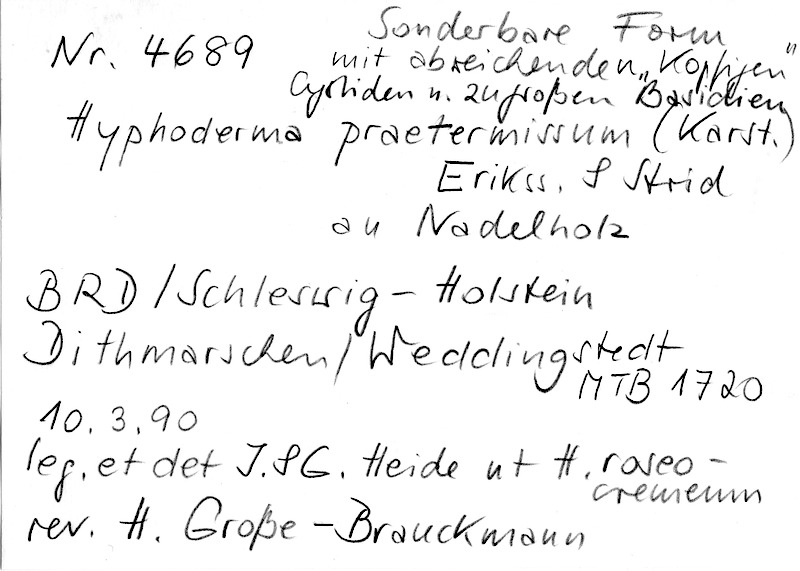 Nr. 4689
Sonderbare Form
mit abweichenden „Kopfigen"
Cystiden u. zu großen Basidien
Hyphoderma praetermissum (Karst.)
Erikss. & Strid
an Nadelholz
BRD / Schleswig – Holstein
Dithmarschen / Weddingstedt
MTB 1720
10. 3. 90
leg. et det J. & G. Heide ut H. roseo-
cremeum
rev. H. Große – Brauckmann